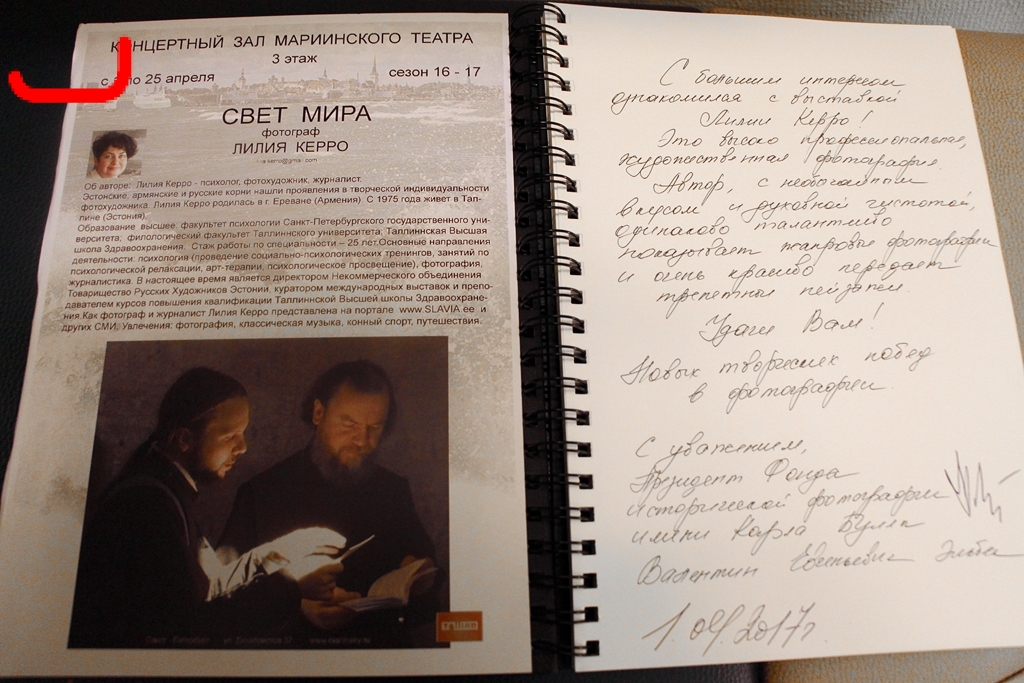 КОНЦЕРТНЫЙ ЗАЛ МАРИИНСКОГО ТЕАТРА
3 этаж
с по 25 апреля
сезон 16 - 17
СВЕТ МИРА
фотограф
ЛИЛИЯ КЕРРО
Об авторе: Лилия Керро - психолог, фотохудожник, журналист.
Эстонские, армянские и русские корни нашли проявления в творческой индивидуальности
фотохудожника. Лилия Керро родилась в г. Ереване (Армения). С 1975 года живет в Тал-
лине (Эстония).
Образование высшее: факультет психологии Санкт-Петербургского государственного уни-
верситета, филологический факультет Таллиннского университета, Таллиннская Высшая
школа Здравоохранения. Стаж работы по специальности – 25 лет.Основные направления
деятельности: психология (проведение социально-психологических тренингов, занятий по
психологической релаксации, арт-терапии, психологическое просвещение), фотография,
журналистика. В настоящее время является директором Некоммерческого объединения
Товарищество Русских Художников Эстонии, куратором международных выставок и препо-
давателем курсов повышения квалификации Таллиннской Высшей школы Здравоохране-
ния.Как фотограф и журналист Лилия Керро представлена на портале www.SLAVIA.ee и
других СМИ. Увлечения: фотография, классическая музыка, конный спорт, путешествия.
С большим интересом
ознакомился с выставкой
Лилии Керро!
Это высоко профессиональная,
художественная фотография.
Автор, с необычайным
вкусом и духовной чистотой,
одинаково талантливо
показывает жанровые фотографии
и очень красиво передает
трепетные пейзажи
Удачи Вам!
Новых творческих побед
в фотографии.
С уважением,
Президент Фонда
исторической фотографии
имени Карла Буллы
Валентин Евгеньевич Эльбек
1.04.2017г